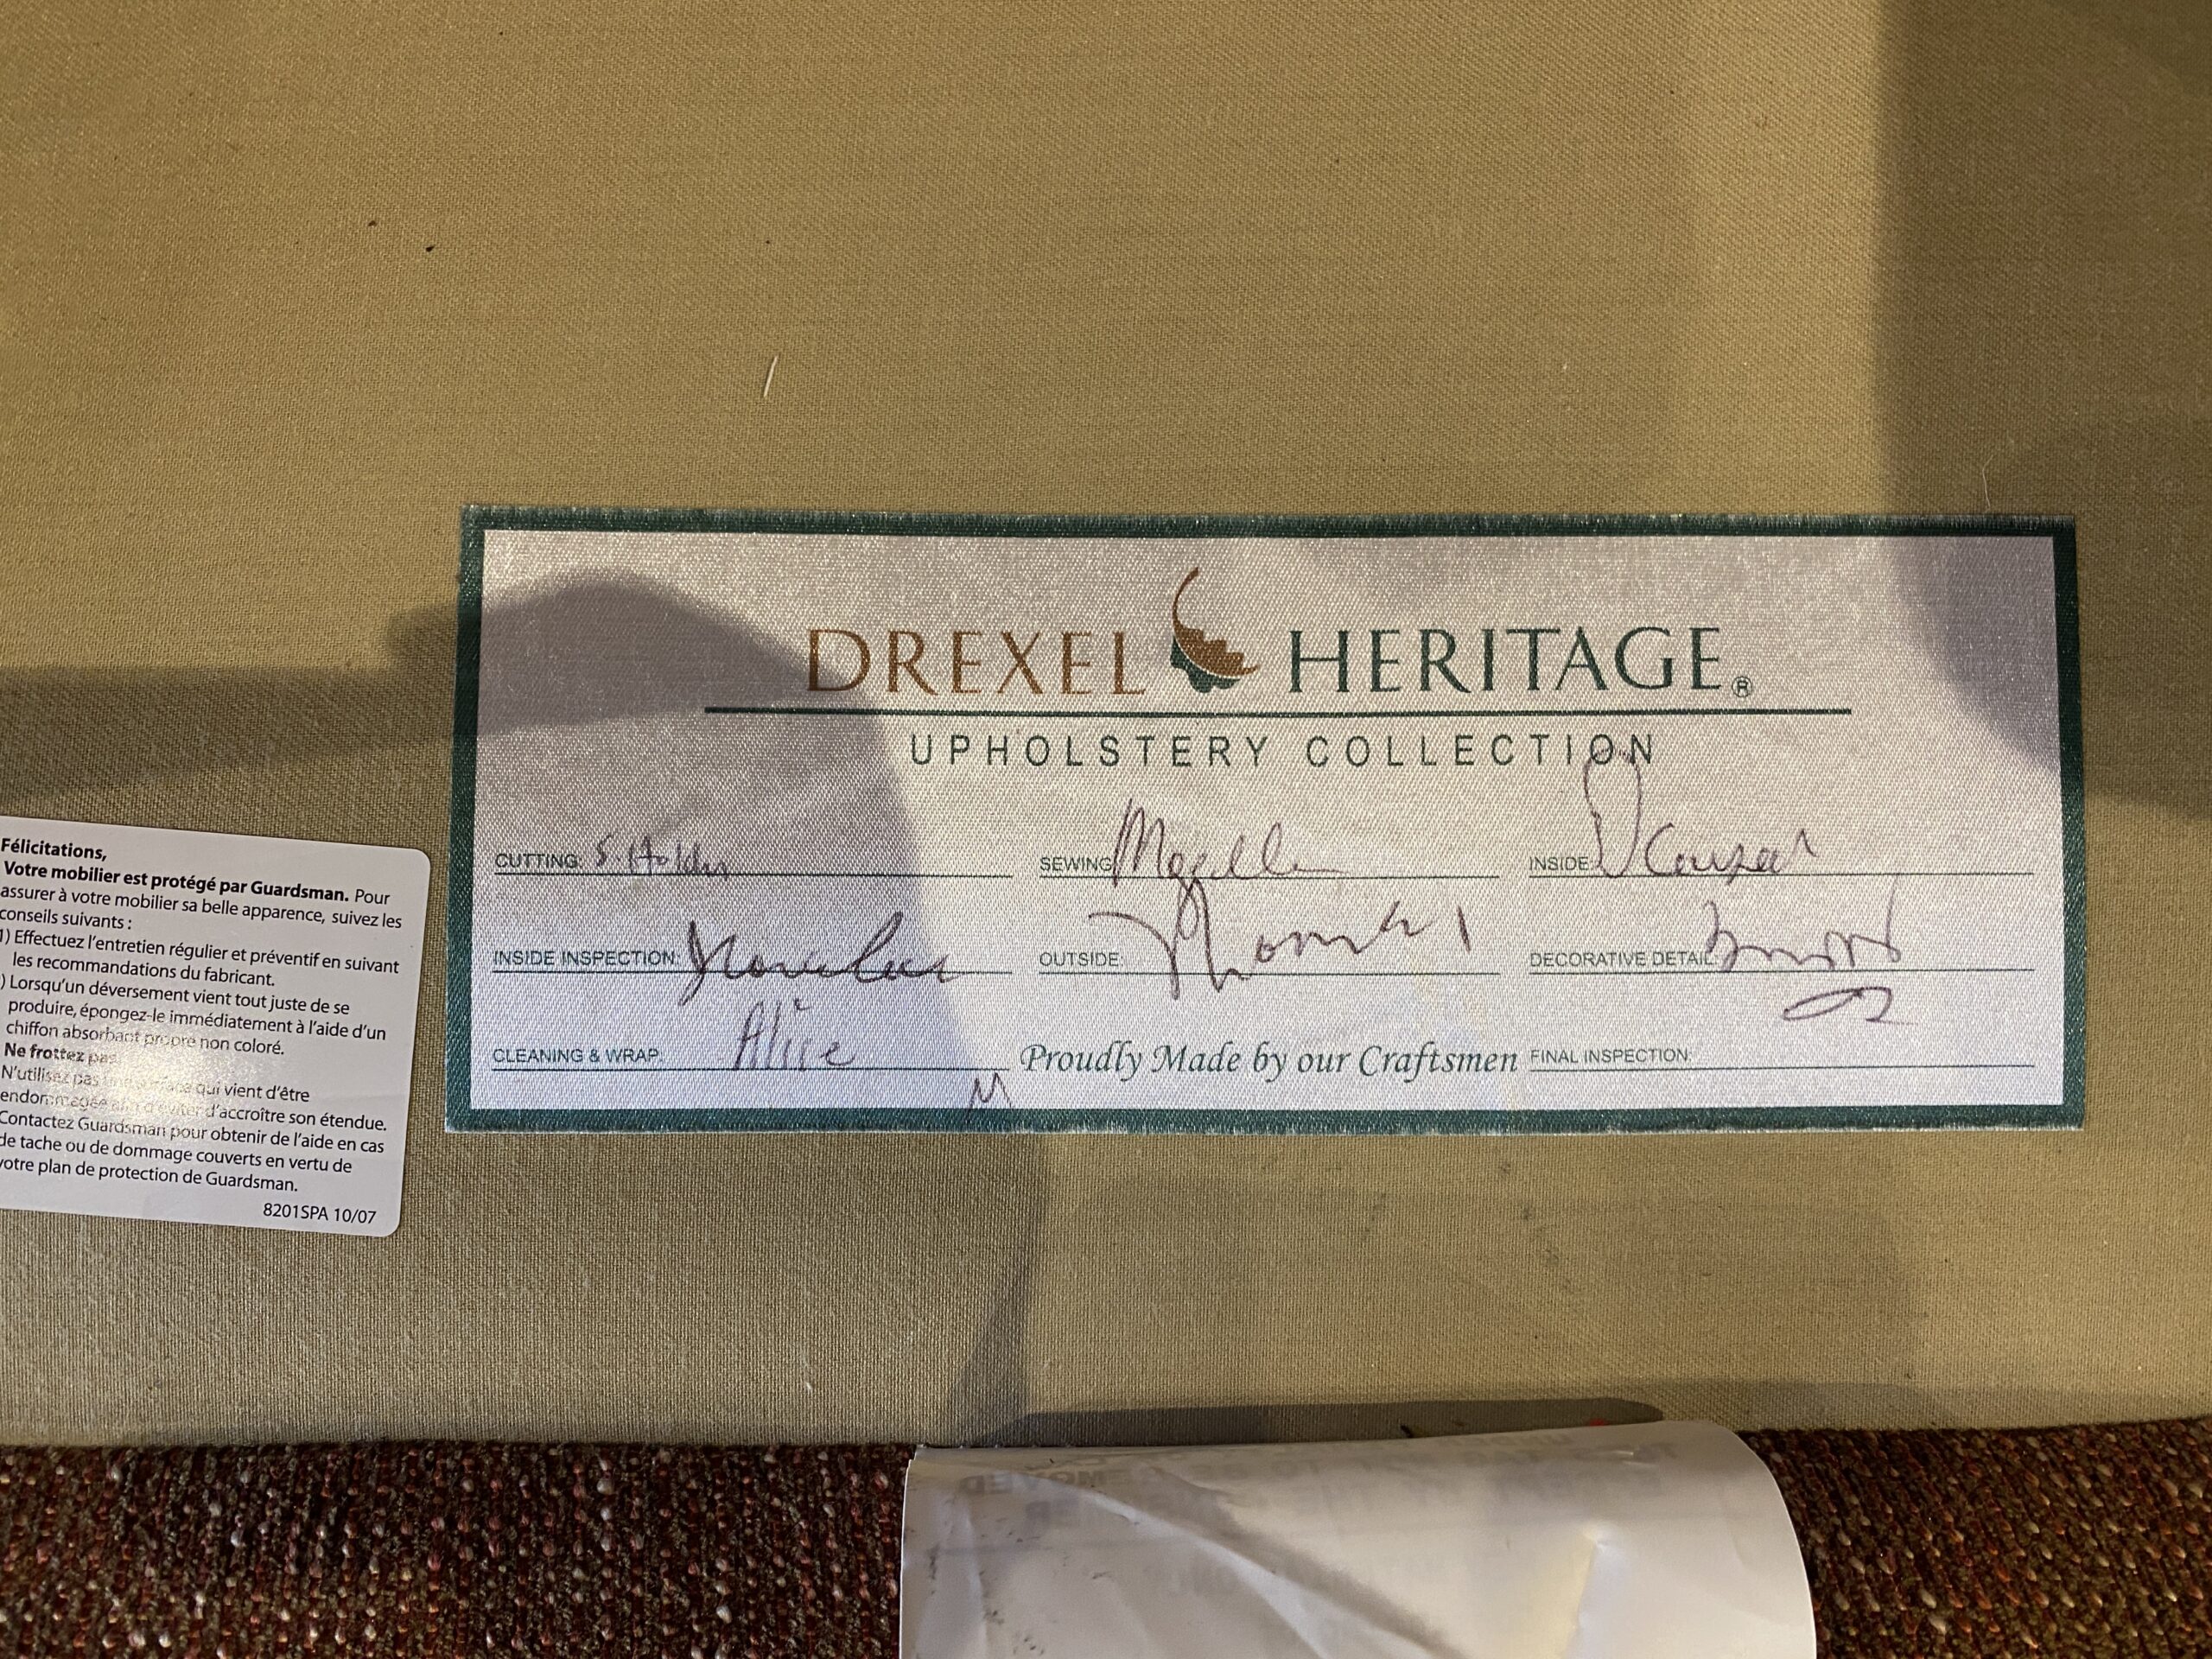 DREXEL HERITAGE®
UPHOLSTERY COLLECTION
CUTTING: S. Holden SEWING: INSIDE:
INSIDE INSPECTION: OUTSIDE: Thomas DECORATIVE DETAIL:
CLEANING & WRAP: Alice Proudly Made by our Craftsmen FINAL INSPECTION:
M
Félicitations,
Votre mobilier est protégé par Guardsman. Pour
assurer à votre mobilier sa belle apparence, suivez les
conseils suivants :
1) Effectuez l'entretien régulier et préventif en suivant
les recommandations du fabricant.
) Lorsqu'un déversement vient tout juste de se
produire, épongez-le immédiatement à l'aide d'un
chiffon absorbant propre non coloré.
Ne frottez pas
N'utilisez pas qui vient d'être
endommagée afin d'éviter d'accroître son étendue.
Contactez Guardsman pour obtenir de l'aide en cas
de tache ou de dommage couverts en vertu de
votre plan de protection de Guardsman.
8201SPA 10/07